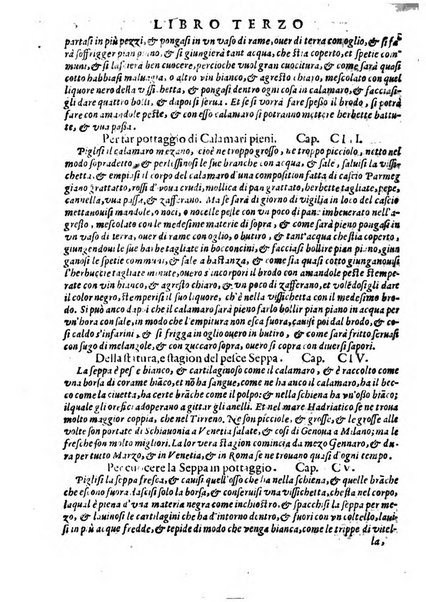 LIBRO TERZO
partasi in più pezzi, & pongasi in un vaso di rame, ouer di terra con oglio, & si farà
soffrigger pian piano, & giungasi tant'acqua, che stia coperto, et spetie com
muni, & si lascierà ben chiuso, perche nō vuol gran cuocitura, & come sarà quasi
cotto habbiasi maluagia, o altro vin bianco, & agresto chiaro, mescolato con quel
liquore nero della vissichetta, & pongasi dentro ogni cosa in calamaro, & facciasi-
gli dare quattro bolti, & dapoi si serua. Et si vorrà fare spesso il brodo, si potrà
fare con amandole peste, & come sarà presso al fine ponganuisi herbette battu-
te, & vua passa.
Per far pottaggio di Calamari pieni. Cap. CLI.
Piglisi il calamaro mezano, cioè ne troppo grosso, ne troppo picciolo, netto nel
modo sopradetto, & perlessinosi le sue branche con acqua, & sale, suisi la vissic-
chetta, & empiasi il corpo del calamaro d'una composition fatta di cascio Parmeg
giano grattato, rossi d'voua crudi, mollica di pan grattata, herbette tagliate, pepe,
cannella, vua passa, & zafferano. Ma se sarà di giorno di vigilia in loco del cascio
mettanouisi mandole, o noci, o nocelle peste con vn poco di pan imbeuerato nell'a-
gresto, mescolando con le medesime materie di sopra, & come sarà pieno pongasi in
vn vaso di terra, ouer di rame con oglio, o butiro, & tant'acqua che stia coper-
to, giungendoui delle sue branche tagliate in bocconcini, & facciasi bollire pian piano, giun
gansi le spetie communi, & come sia quasi cotto giunganouisi
l'herbuccie tagliate minute, ouer s'incorpori il brodo con amandole peste stempe-
rate con vin bianco, & agresto chiaro, et vn poco di zafferano, et volēdosigli dare
il color negro, stemperisi il suo liquore, ch'è nella vissichetta con il medesimo bro-
do. Si può anco dapoi che il calamaro sarà pieno farlo bollir pian piano in acqua per
vn'hora con sale, in modo che l'empitura non esca fuora, cauisi poi dal brodo, & co-
sì caldo s'infarini, & si frigga in oglio ouero in butiro, & come sarà fritto seruasi
con sugo di melangole, & zuccaro sopra, ouero si copra con diuersi sapori.
Della statura, e stagion del pesce Seppa. Cap. CIV.
La seppa è pesce bianco, & cartilaginoso come il calamaro, & è raccolto come
vna borsa di corame biāco, et nō ha sangue, come ne anco il calamaro, ha il bec
co come la ciuetta, ha certe brāche come il polpo; & nella schiena ha vn'osso biāco;
ilquale gli orefici adoprano a gittar gli anelli. Et nel mare Hadriatico se ne troua
maggior coppia, che nel Tirreno. Ve son picciole, & grosse, & le grosse alle
volte son portate di Schiauonia a Venetia salate, cosi di Genoa a Milano; ma le
fresche son molto migliori. La lor vera stagion comincia da mezo Gennaro, & du-
ra per tutto Marzo, & in Venetia, & in Roma se ne trouano quasi d'ogni tempo.
Per cuocere la Seppa in pottaggio. Cap. CV.
Piglisi la seppa fresca, & cauisi quell'osso che ha nella schiena, & quelle brāche
che escono fuora, lascisi solo la borsa, & conseruisi vna vissichetta, che stà nel corpo,
laqual è piena d'vna materia negra come inchiostro; & spacchisi la seppa per me-
zo, & lauinosi le cartilagini che ha d'intorno dentro, & fuori con vn coltello, laui-
si in più acque fredde, & tepide in modo che resti bianca, & se le trippe di vitel-
la,